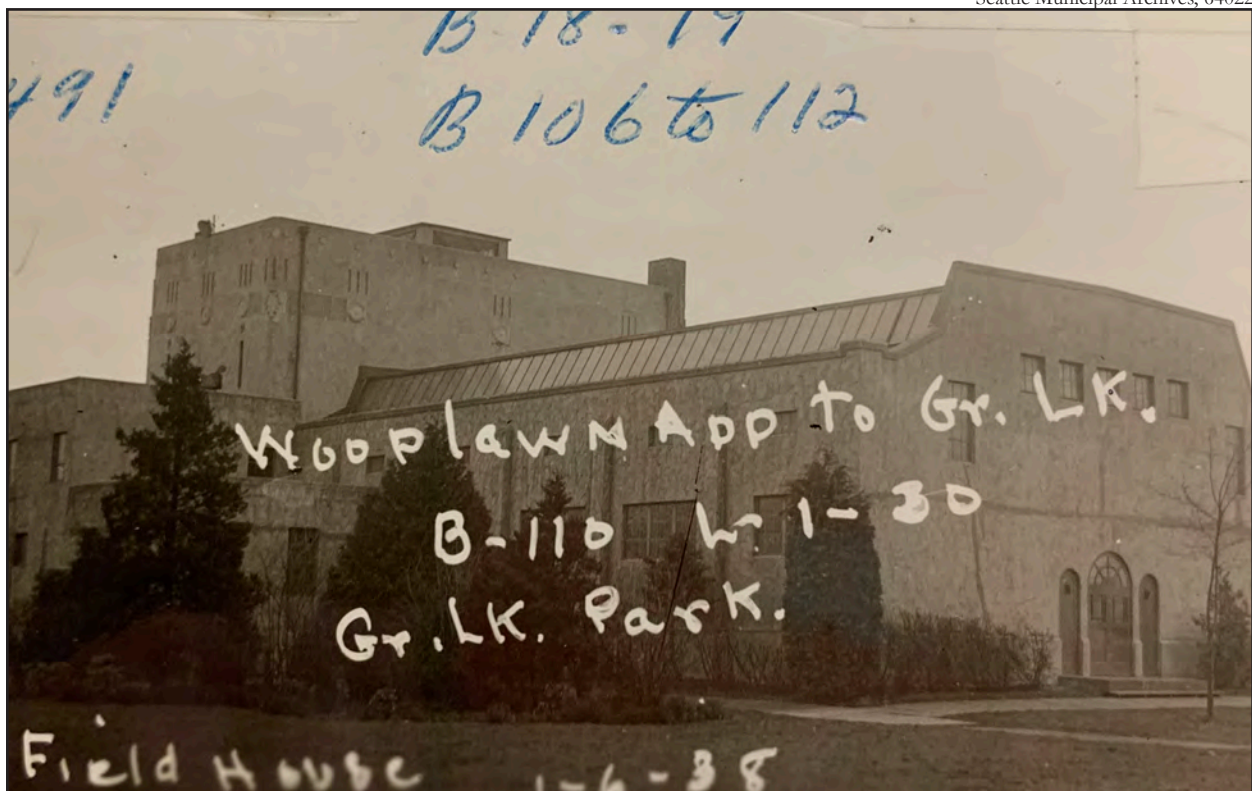 Seattle Municipal Archives, 64022
B 18-19
491
B 106 to 112
WOODlawN ADD to Gr. LK.
B-110 L-1-30
Gr. LK. Park.
Field House 1-6-38